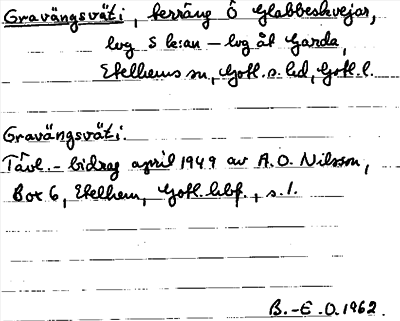 Gravängsväti, terräng Ö Glabbeskvejar,
lvg S k:an – lvg åt Garda,
Etelhems sn, Gotl. s. hd, Gotl. l.
Gravängsväti.
Tävl.-bidrag april 1949 av A. O. Nilsson,
Box 6, Etelhem, Gotl. hbf., s. 1.
B.-E. O. 1962.